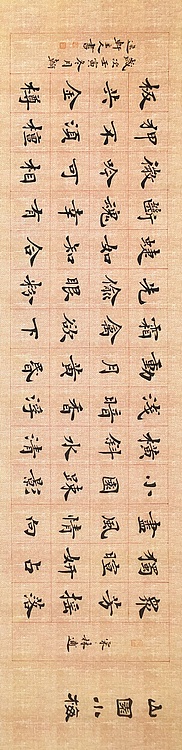 山園小梅
宋林逋
眾芳搖落
獨暄妍占
盡風情向
小園踈影
橫斜水清
淺暗香浮
動月黃昏
霜禽欲下
先偷眼粉
蝶如知合
斷魂幸有
微吟可相
狎不須檀
板共金樽
歲次壬寅冬月
軒主人書